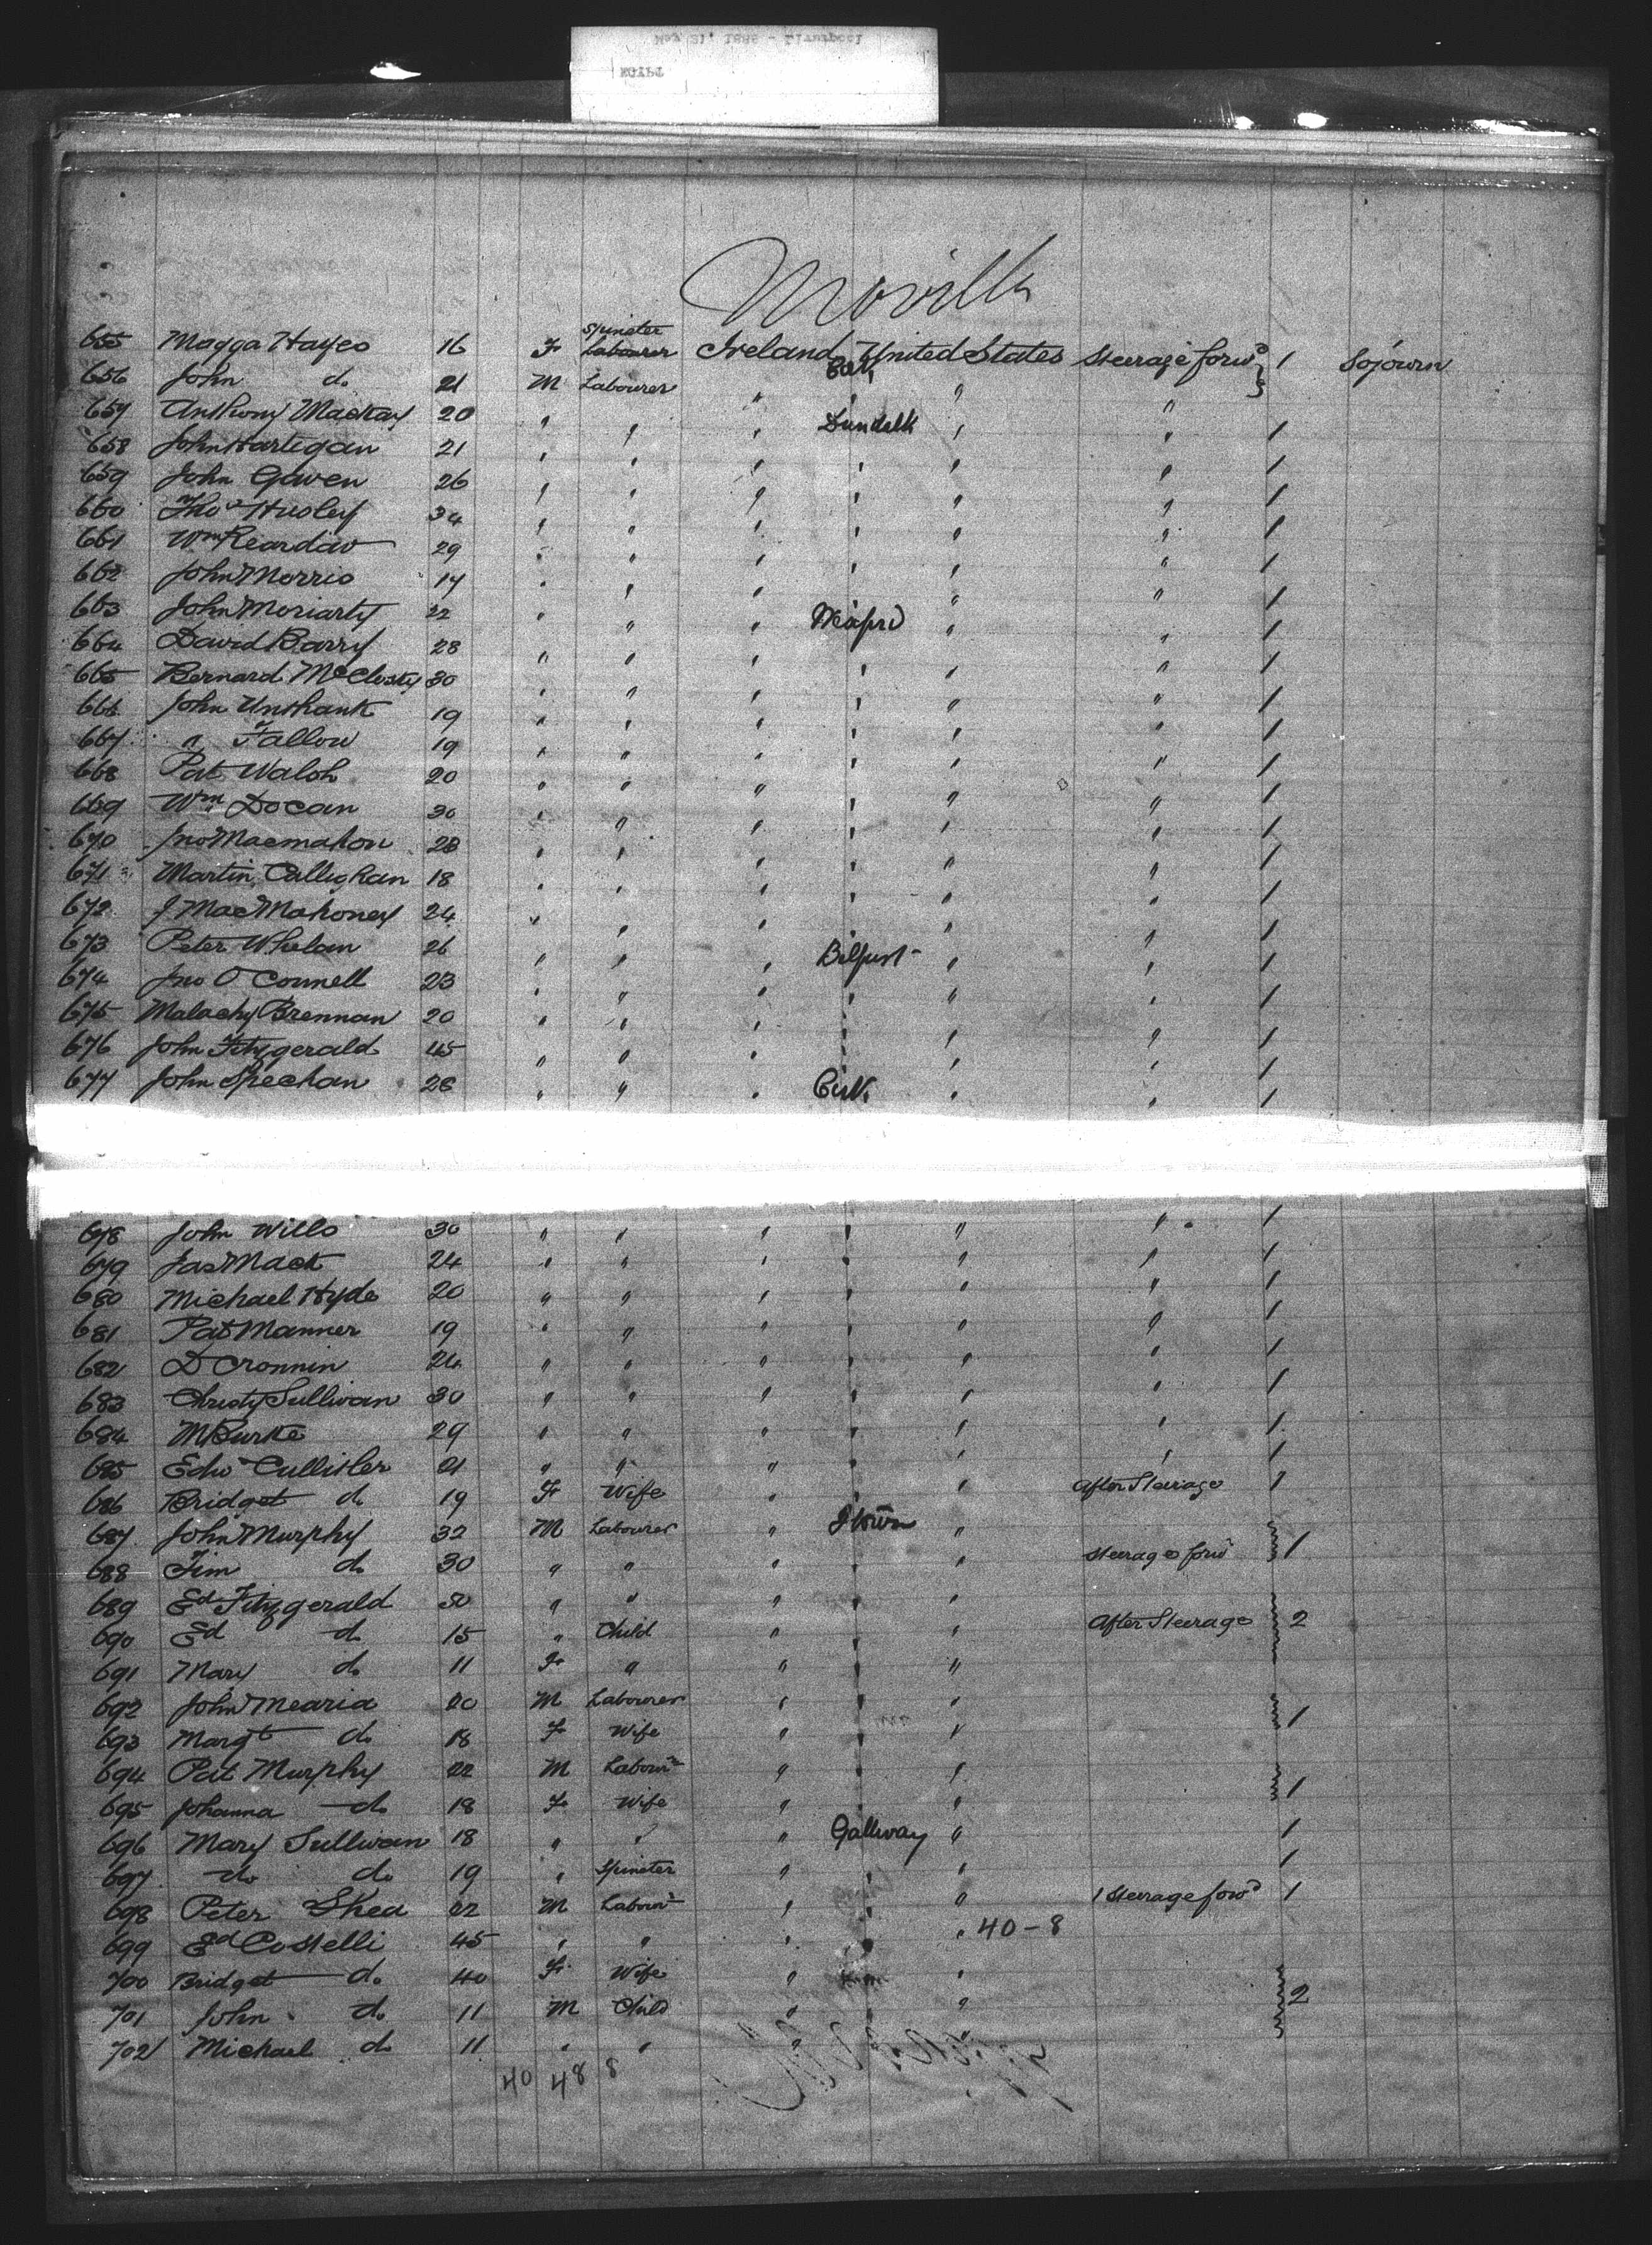 Moville
655 Magga Hayes 16 F Spinster Labourer Ireland United States Steerage forwd 1 Sojourn
656 John do 21 M Labourer " " " "
657 Anthony Mackay 20 " " " Dundalk " " 1
658 John Hartigan 21 " " " " " " 1
659 John Gaven 26 " " " " " " 1
660 Thos Husley 34 " " " " " " 1
661 Wm Reardow 29 " " " " " " 1
662 John Morris 17 " " " " " " 1
663 John Moriarty 22 " " " " " 1
664 David Barry 28 " " " " " " 1
665 Bernard McClosky 30 " " " " " " 1
666 John Unthank 19 " " " " " " 1
667 " Fallow 19 " " " " " " 1
668 Pat Walsh 20 " " " " " " 1
669 Wm Docan 30 " " " " " " 1
670 Jno Macmahon 28 " " " " " " 1
671 Martin Callighan 18 " " " " " " 1
672 J MacMahoney 24 " " " " " " 1
673 Peter Whelan 26 " " " Belfast " " 1
674 Jno O Connell 23 " " " " " " 1
675 Malachy Brennan 20 " " " " " " 1
676 John Fitzgerald 45 " " " " " " 1
677 John Speehan 28 " " " " " 1
678 John Wills 30 " " " " " " 1
679 Jas Mack 24 " " " " " " 1
680 Michael Hyde 20 " " " " " " 1
681 Pat Manner 19 " " " " " " 1
682 D Cronnin 24 " " " " " " 1
683 Christy Sullivan 30 " " " " " " 1
684 M Burke 29 " " " " " " 1
685 Edw Cullisler 21 " " " " " " 1
686 Bridget do 19 F Wife " " " After Steerage 1
687 John Murphy 32 M Labourer " "
688 Tim do 30 " " " " " Steerage forwd 1
689 Ed Fitzgerald 50 " " " " "
690 Ed do 15 " Child " " " After Steerage 2
691 Mary do 11 F " " " "
692 John Mearia 20 M Labourer " " "
693 Margt do 18 F Wife " " " 1
694 Pat Murphy 22 M Labourr " " "
695 Johanna do 18 F Wife " " " 1
696 Mary Sullivan 18 " " " Gallway " 1
697 do do 19 " Spinster " " " 1
698 Peter Shea 22 M Labourr " " " 1 Steerage forwd 1
699 Ed Costelli 45 " " " " " 40-8
700 Bridget do 40 F Wife " "
701 John do 11 M Child " " 2
702 Michael do 11 " " " "
40 48 8